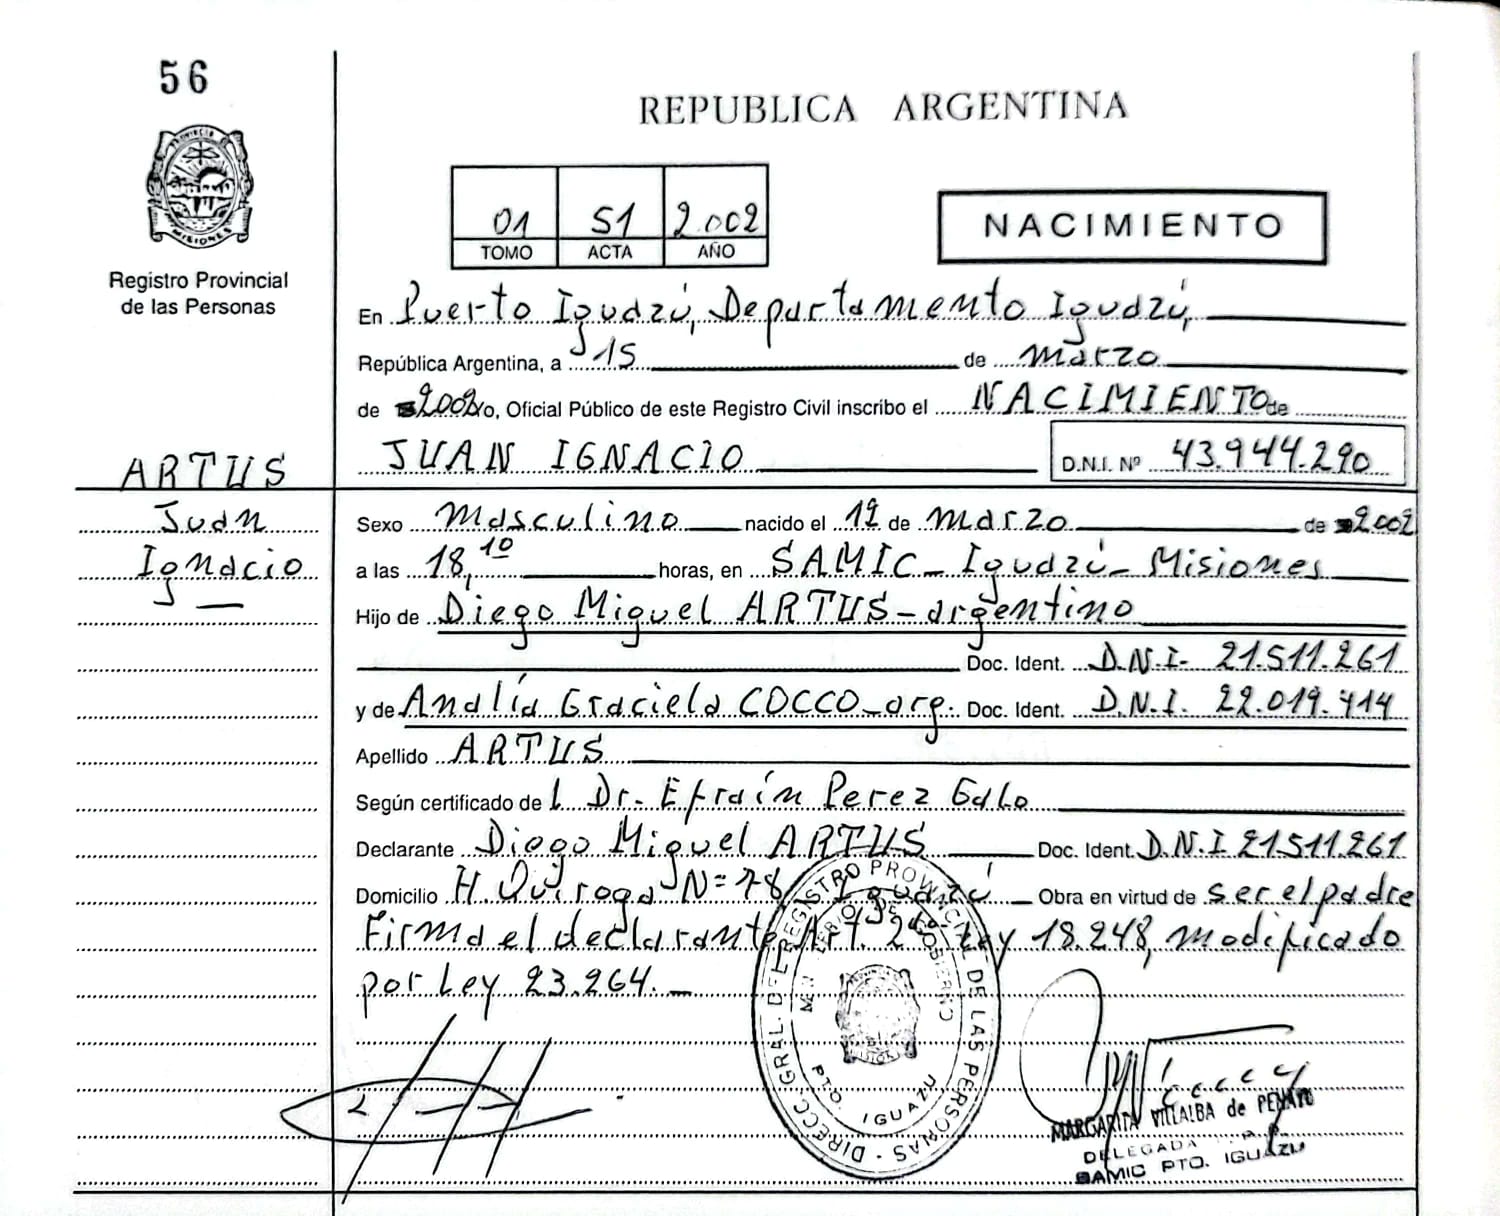 56
REPUBLICA ARGENTINA
PROVINCIA
MISIONES
Registro Provincial
de las Personas
01 51 2.002
TOMO ACTA AÑO
NACIMIENTO
En Puerto Iguazú, Departamento Iguazú,
República Argentina, a 15 de marzo
de 2002 yo, Oficial Público de este Registro Civil inscribo el NACIMIENTO de
JUAN IGNACIO D.N.I. Nº 43.944.290
ARTUS
Juan
Ignacio
Sexo masculino nacido el 12 de marzo de 2002
a las 18,10 horas, en SAMIC - Iguazú - Misiones
Hijo de Diego Miguel ARTUS - argentino
Doc. Ident. D.N.I. 21.511.261
y de Analía Graciela COCCO - arg. Doc. Ident. D.N.I. 22.019.414
Apellido ARTUS
Según certificado de l Dr. Efraín Perez Galo
Declarante Diego Miguel ARTUS Doc. Ident. D.N.I 21511.261
Domicilio H. Quiroga N= 78 Iguazú Obra en virtud de ser el padre
Firma el declarante Art. 2do Ley 18.248, modificado
por Ley 23.264.
DIRECC. GRAL. DEL REGISTRO PROVINCIAL DE LAS PERSONAS
GOBIERNO
PTO. IGUAZU
MARGARITA VILLALBA de
DELEGADA
SAMIC PTO. IGUAZU